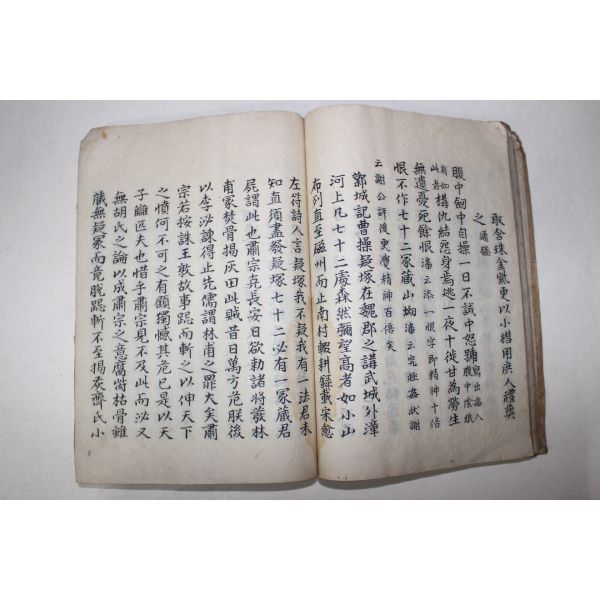 取含珠金甖更以小槥用庶人禮葬
之 通鑑
腹中劒中自操一日不試中怒號 寫出姦人腹中陰狠
如此若搆仇結怨身焉逃一夜十徙甘為勞生
無遺憂死餘恨 潘云添一恨字即精神十倍
恨不作七十二冢藏山坳 潘云究極姦狀謝
云謝公評後更覺精神百倍矣
鄴城記曹操疑塚在魏郡之講武城外漳
河上凡七十二處森然彌望高者如小山
布列直至磁州而止南村輟耕録載宋俞
左符詩人言疑塚我不疑我有一法君未
知直須盡發疑塚七十二必有一冢藏君
屍謂此也肅宗克長安日欲勅諸將發林
甫冢焚骨揚灰曰此賊昔日萬方危朕後
以李泌諫得止先儒謂林甫之罪大矣肅
宗若按誅王敦故事跽而斬之以伸天下
之憤何不可之有顧獨憾其危已是以天
子讎匹夫也惜乎肅宗見不及此而泌又
無胡氏之論以成肅宗之意腐胔枯骨雖
藏無疑冢而竟脫跽斬不至揚灰齊氏小